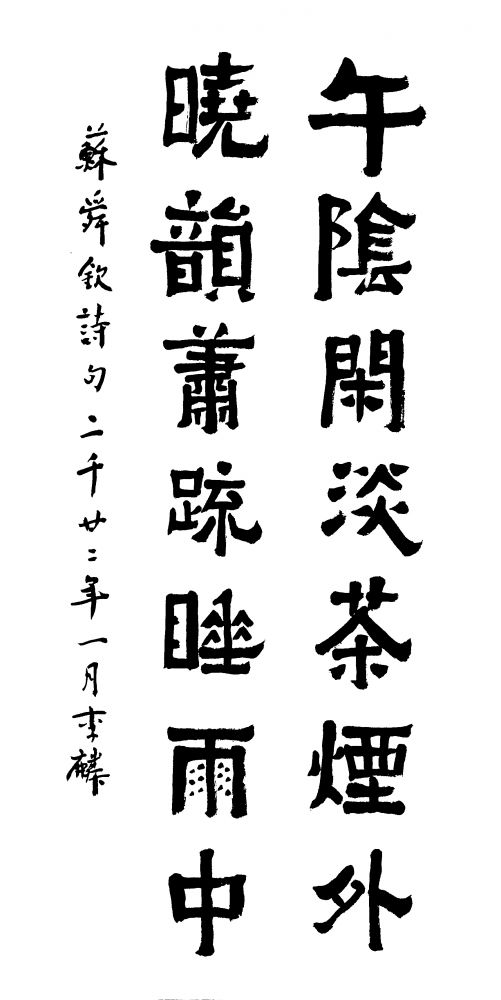 午陰閑淡茶煙外
曉韻蕭疏睡雨中
蘇舜欽詩句二千廿二年一月李麟